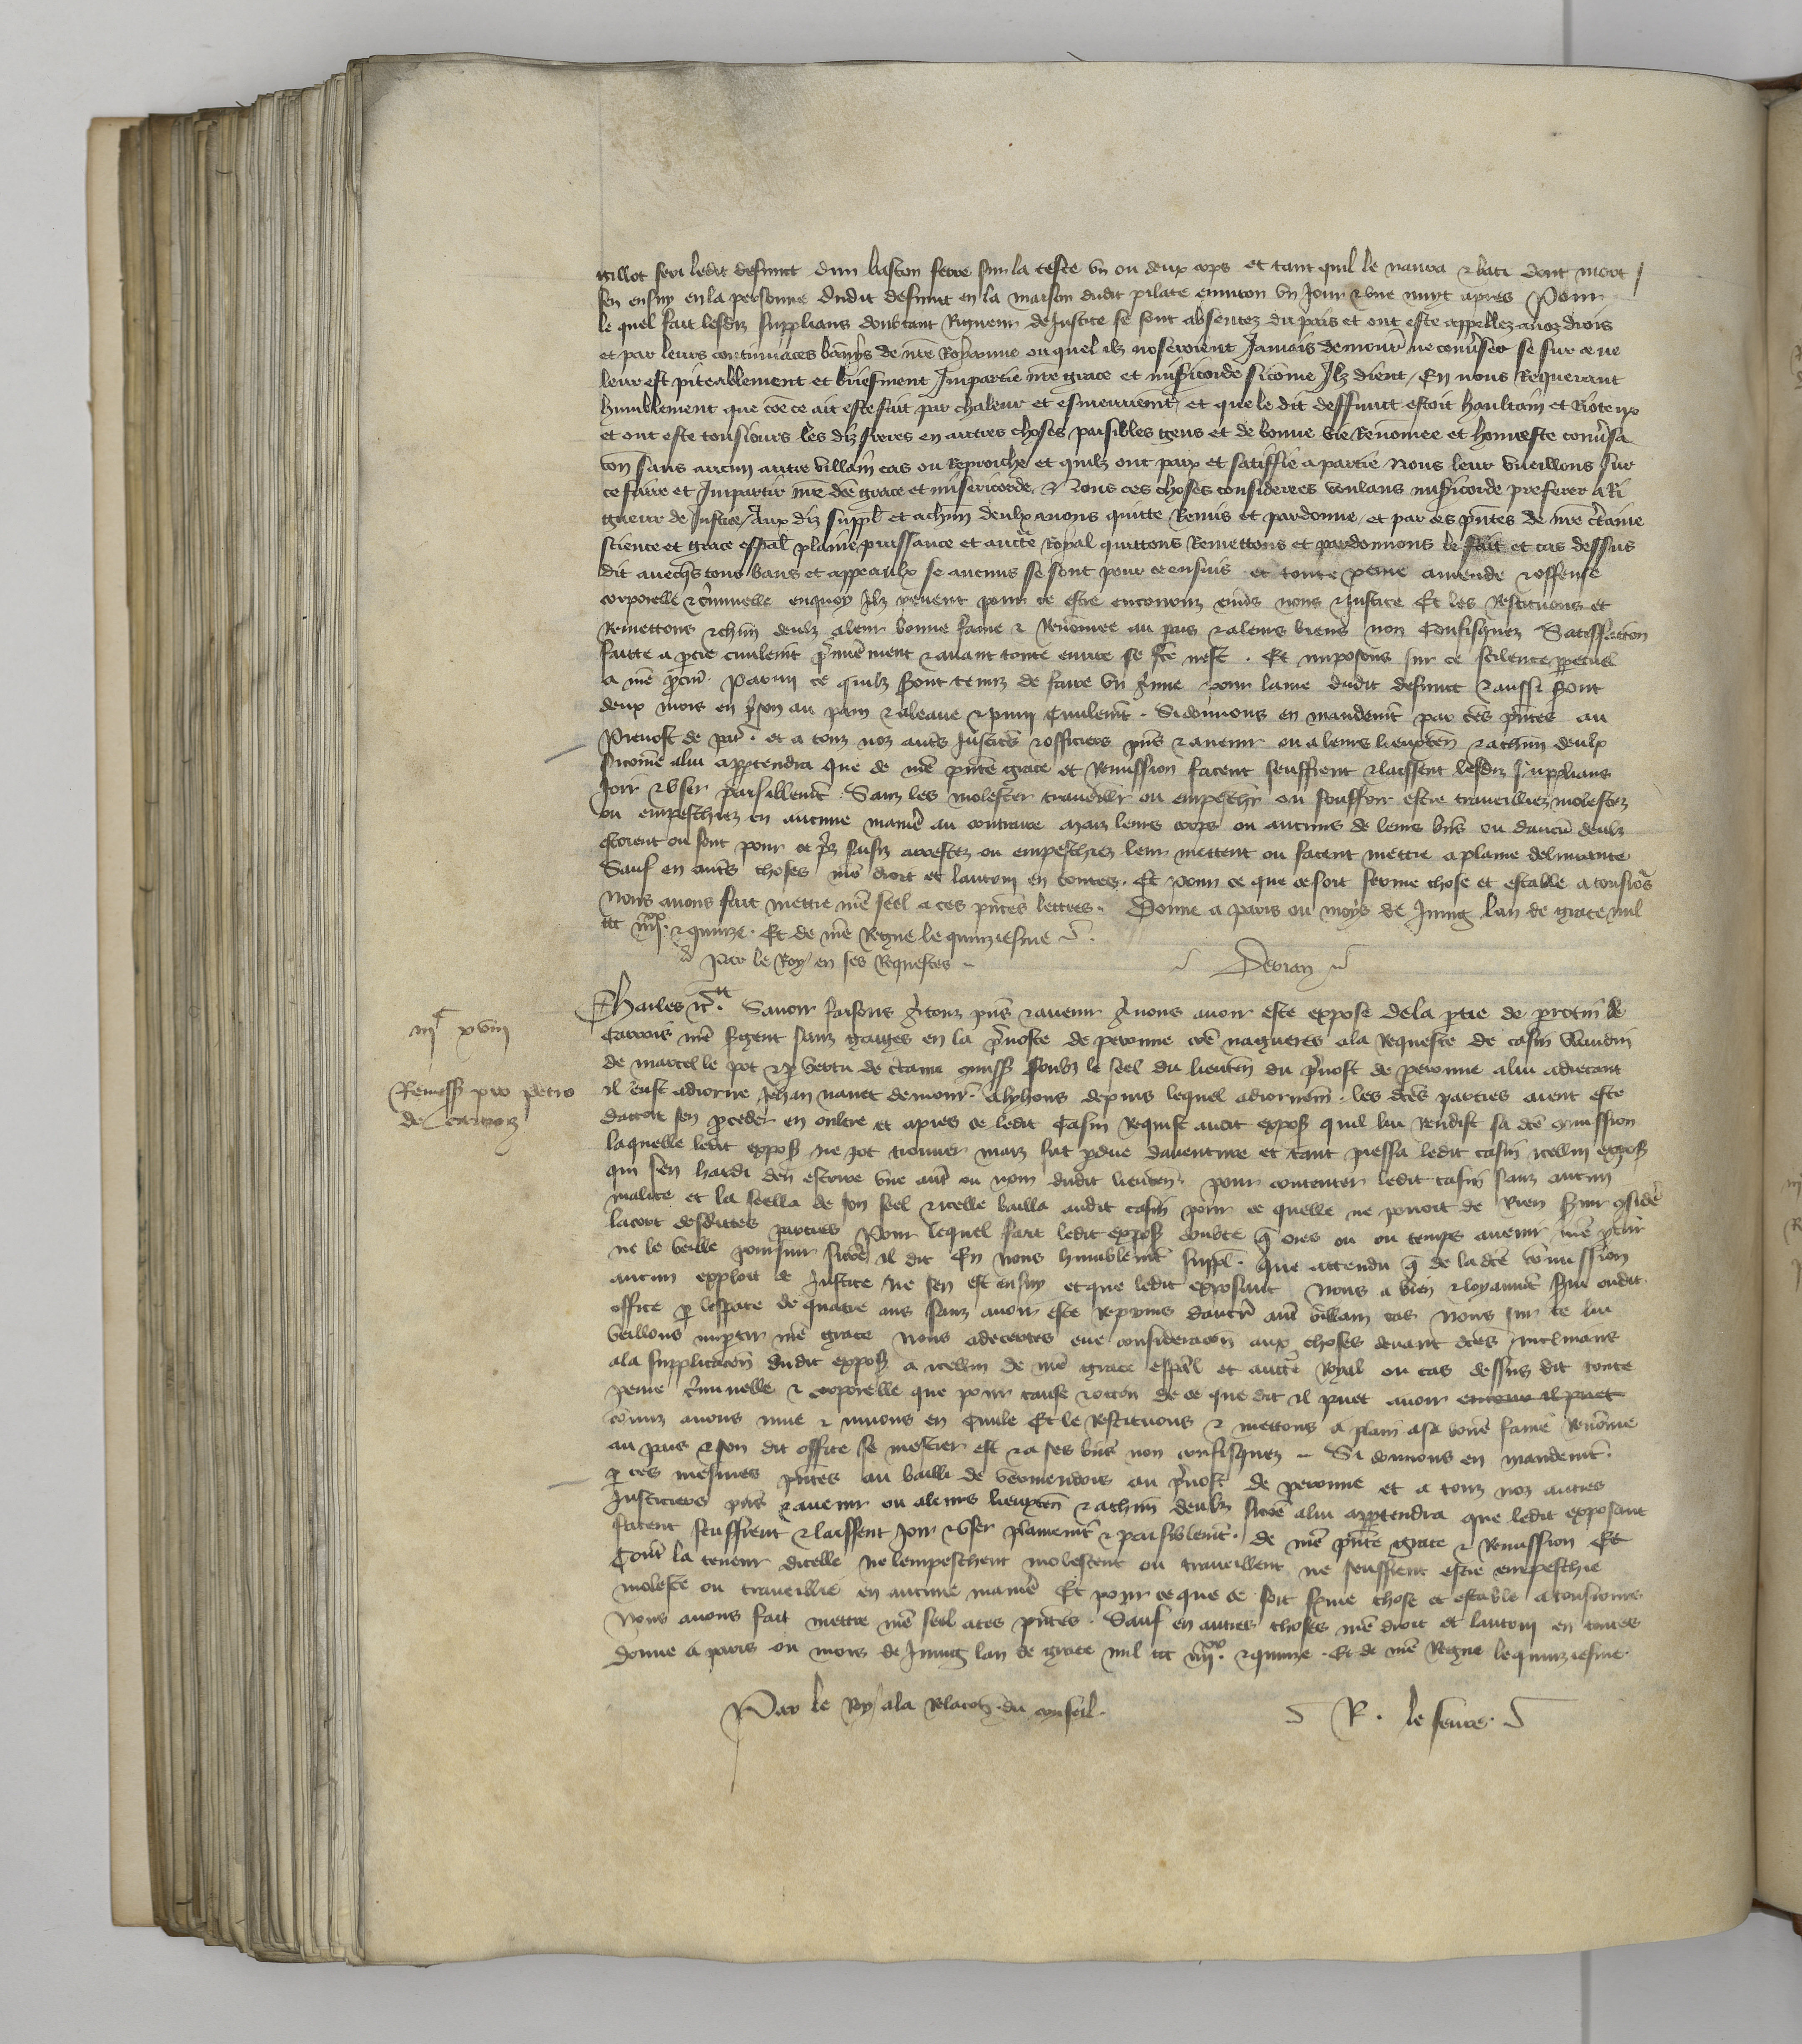 gillot feri ledit defunct dun baston ferre sur la teste un ou deux cops et tant quil le navra & bati dont mort
sen ensuy en la personne dudit defunct en la maison dudit pilate environ un jour & une nuyt apres Pour
le quel fait lesdiz supplians doubtant Rigueur de Justice se sont absentez du pais et ont este appellez a noz drois
et par leurs contumaces bannys de nre Royaume ou quel ilz noseroient Jamais demourer ne converser se sur ce ne
leur est piteablement et briefment Impartie nre grace et misericorde sicome Ilz dient / En nous Requerant
humblement que come ce ait este fait par chaleur et esmeuvement et que le dit deffunct estoit haultain et Rioteux
et ont este tousiours les diz freres en autres choses paisibles gens et de bonne vie Renomee et honneste conversa
con sans aucun autre villain cas ou Reproiche et quilz ont paix et satiffie a partie Nous leur vueillons sur
ce faire et Impartir nre dce grace et misericorde & Nous ces choses considerees voulans misericorde preferer a Ri
gueur de Justice / Aux diz suppl et a chun deulx avons quitte Remis et pardonne / et par ces pntes de nre ctaine
science et grace espal plaine puissance et aucte Royal quittons Remettons et pardonnons le fait et cas dessus
dit avecqs tous bans et appeaulx se aucuns se sont pour ce ensuis et toute peine amende & offense
corporelle & criminelle en quoy Ilz pevent pour ce estre encouruz envers nous & Justice Et les Restituons et
Remettons & chun deulz a leur bonne fame & Renomee au pais & a leurs biens non Confisquez Satisfaction
faitte a ptie civilemt premierement & avant toute euvre se fce nest . Et imposons sur ce scilence ppetuel
a nre pcur . Parmi ce quilz sont tenuz de faire un pour lame dudit defunct & aussi sont
deux mois en pson au pain & a leaue & puniz Civilemt . Si donnons en mandemt par ces pntes au
Prevost de par . et a touz noz auts Justicrs & officiers pns & avenir ou a leurs lieuxten & a chun deulx
sicome a lui appartendra que de nre pnte grace et Remission facent seuffrent & laissent lesdiz supplians
Joir & user paisiblemt . Sanz les molester traveillr ou empeschr ou souffrir estre traveilliez molestez
ou empeschiez en aucune maniere au contraire maiz leurs corps ou aucuns de leurs bns ou daucun deulz
estoient ou sont pour ce prz saisiz arrestez ou empeschiez leur mettent ou facent mettre a plaine delivrance
Sauf en auts choses nre droit et lautruy en toutes . Et pour ce que ce soit ferme chose et estable a tousiors
Nous avons fait mettre nre seel a ces pntes lettres . Donne a paris ou moys de Juing lan de grace mil
ccc iiiixx . & quinze . Et de nre Regne le quinziesme
Par le Roy / en ses Requestes
Charles &c . Savoir faisons a touz pns & avenir a nous avoir este expose de la ptie de protin de
nre sgent sanz gaiges en la prevoste de peronne come nagueres a la Requeste de casin
de marcel le pot & p vertu de ctaine comiss soubz le seel du lieuten du prevost de peronne a lui adrecant
il eust adiorne Jehan navet demour . a depuis lequel adiornemt . les dces parties aient este
daccort sen proceder en oultre et apres ce ledit Casin Requist audit expos quil lui Rendist sa dce comission
laquelle ledit expos ne pot trouver maiz fut pdue daventure et tant pressa ledit casin icellui expos
qui sen hardi den escrire une autre ou nom dudit lieuten . pour contenter ledit casin sanz aucun
malice et la seella de son seel & icelle bailla audit casin pour ce quelle ne povoit de Rien servir consider
lacort desdittes parties Pour lequel fait ledit expos doubte q ores ou ou temps avenir nre pcur
ne le veille poursuir sicome il dit En nous humblemt suppl . Que attendu q de la dce comission
aucun exploit de Justice ne sen est ensuy et que ledit exposant Nous a bien & loyaumt servi oudit
office p lespace de quatre ans sanz avoir este Repprins daucun autre villain cas Nous sur ce lui
veillons impartir nre grace Nous adecertes eue consideracon aux choses devant dces inclinans
a la supplicacon dudit expos a icellui de nre grace espal et aucte Royal ou cas dessus dit toute
peine criminelle & corporelle que pour cause & occon de ce que dit il puet avoir encouru il puet
avons mue & muons en civile Et le Restituons & mettons a plain a sa bonne fame Renomee
au pais & son dit office se mestier est & a ses bns non confisquez Si donnons en mandemt .
p ces mesmes pntes au bailli de vermendois au prevost de peronne et a touz noz autres
Justiciers pns & avenir ou a leurs lieuxten & a chun deulz sicome a lui appartendra que ledit exposant
facent seuffrent & laissent Joir & user plainemt & paisiblemt . de nre pnte grace & Remission Et
Contre la teneur dicelle ne lempeschent molestent ou traveillent ne seuffrent estre empeschie
moleste ou traveillie en aucune maniere Et pour ce que ce soit ferme chose et estable a tousiours
Nous avons fait mettre nre seel a ces pntes . Sauf en autres choses nre droit et lautruy en toutes
Donne a paris ou mois de Juing lan de grace mil ccc iiiixx . & quinze . Et de nre Regne le quinziesme .
Par le Roy / a la Relacon du conseil .
R . le fevre .
iiic xviii
Remiss pro petro
de